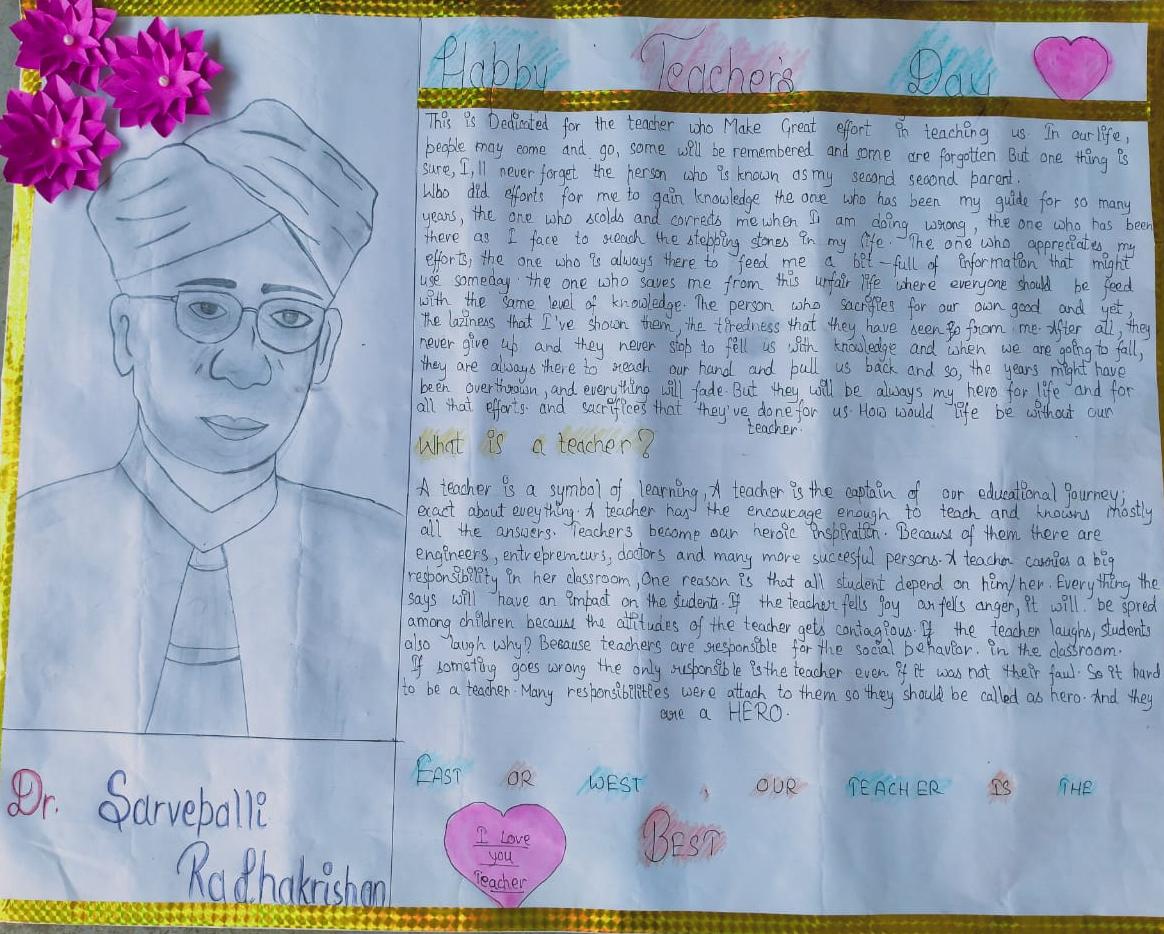 Happy Teacher's Day
This is Dedicated for the teacher who Make Great effort in teaching us. In our life,
people may come and go, some will be remembered and some are forgotten. But one thing is
sure, I,ll never forget the person who is known as my second second parent.
Who did efforts for me to gain knowledge the one who has been my guide for so many
years, the one who scolds and corrects me when I am doing wrong, the one who has been
there as I face to reach the stepping stones in my life. The one who appreciates my
efforts, the one who is always there to feed me a bit-full of information that might
use someday the one who saves me from this unfair life where everyone should be feed
with the same level of knowledge. The person who sacrifies for our own good and yet,
The laziness that I've shown them, the tiredness that they have seen from me. After all, they
never give up and they never stop to fell us with knowledge and when we are going to fall,
they are always there to reach our hand and pull us back and so, the years might have
been overthrown, and everything will fade. But they will be always my hero for life and for
all that efforts and sacrifices that they've done for us. How would life be without our
teacher.
What is a teacher?
A teacher is a symbol of learning, A teacher is the captain of our educational journey;
exact about eveything. A teacher has the encourage enough to teach and knowns mostly
all the answers. Teachers become our heroic inspiration. Because of them there are
engineers, entrepreneurs, doctors and many more succesful persons. A teacher carries a big
responsibility in her classroom, One reason is that all student depend on him/her. Everything the
says will have an impact on the students. If the teacher fells joy or fells anger, it will be spred
among children because the attitudes of the teacher gets contagious. If the teacher laughs, students
also laugh why? Because teachers are responsible for the social behavior. in the classroom.
If someting goes wrong the only responsible is the teacher even if it was not their faul. So it hard
to be a teacher. Many responsibilities were attach to them so they should be called as hero. And they
are a HERO.
EAST OR WEST, OUR TEACHER IS THE
BEST
I Love
you
Teacher
Dr. Sarvepalli
Radhakrishan